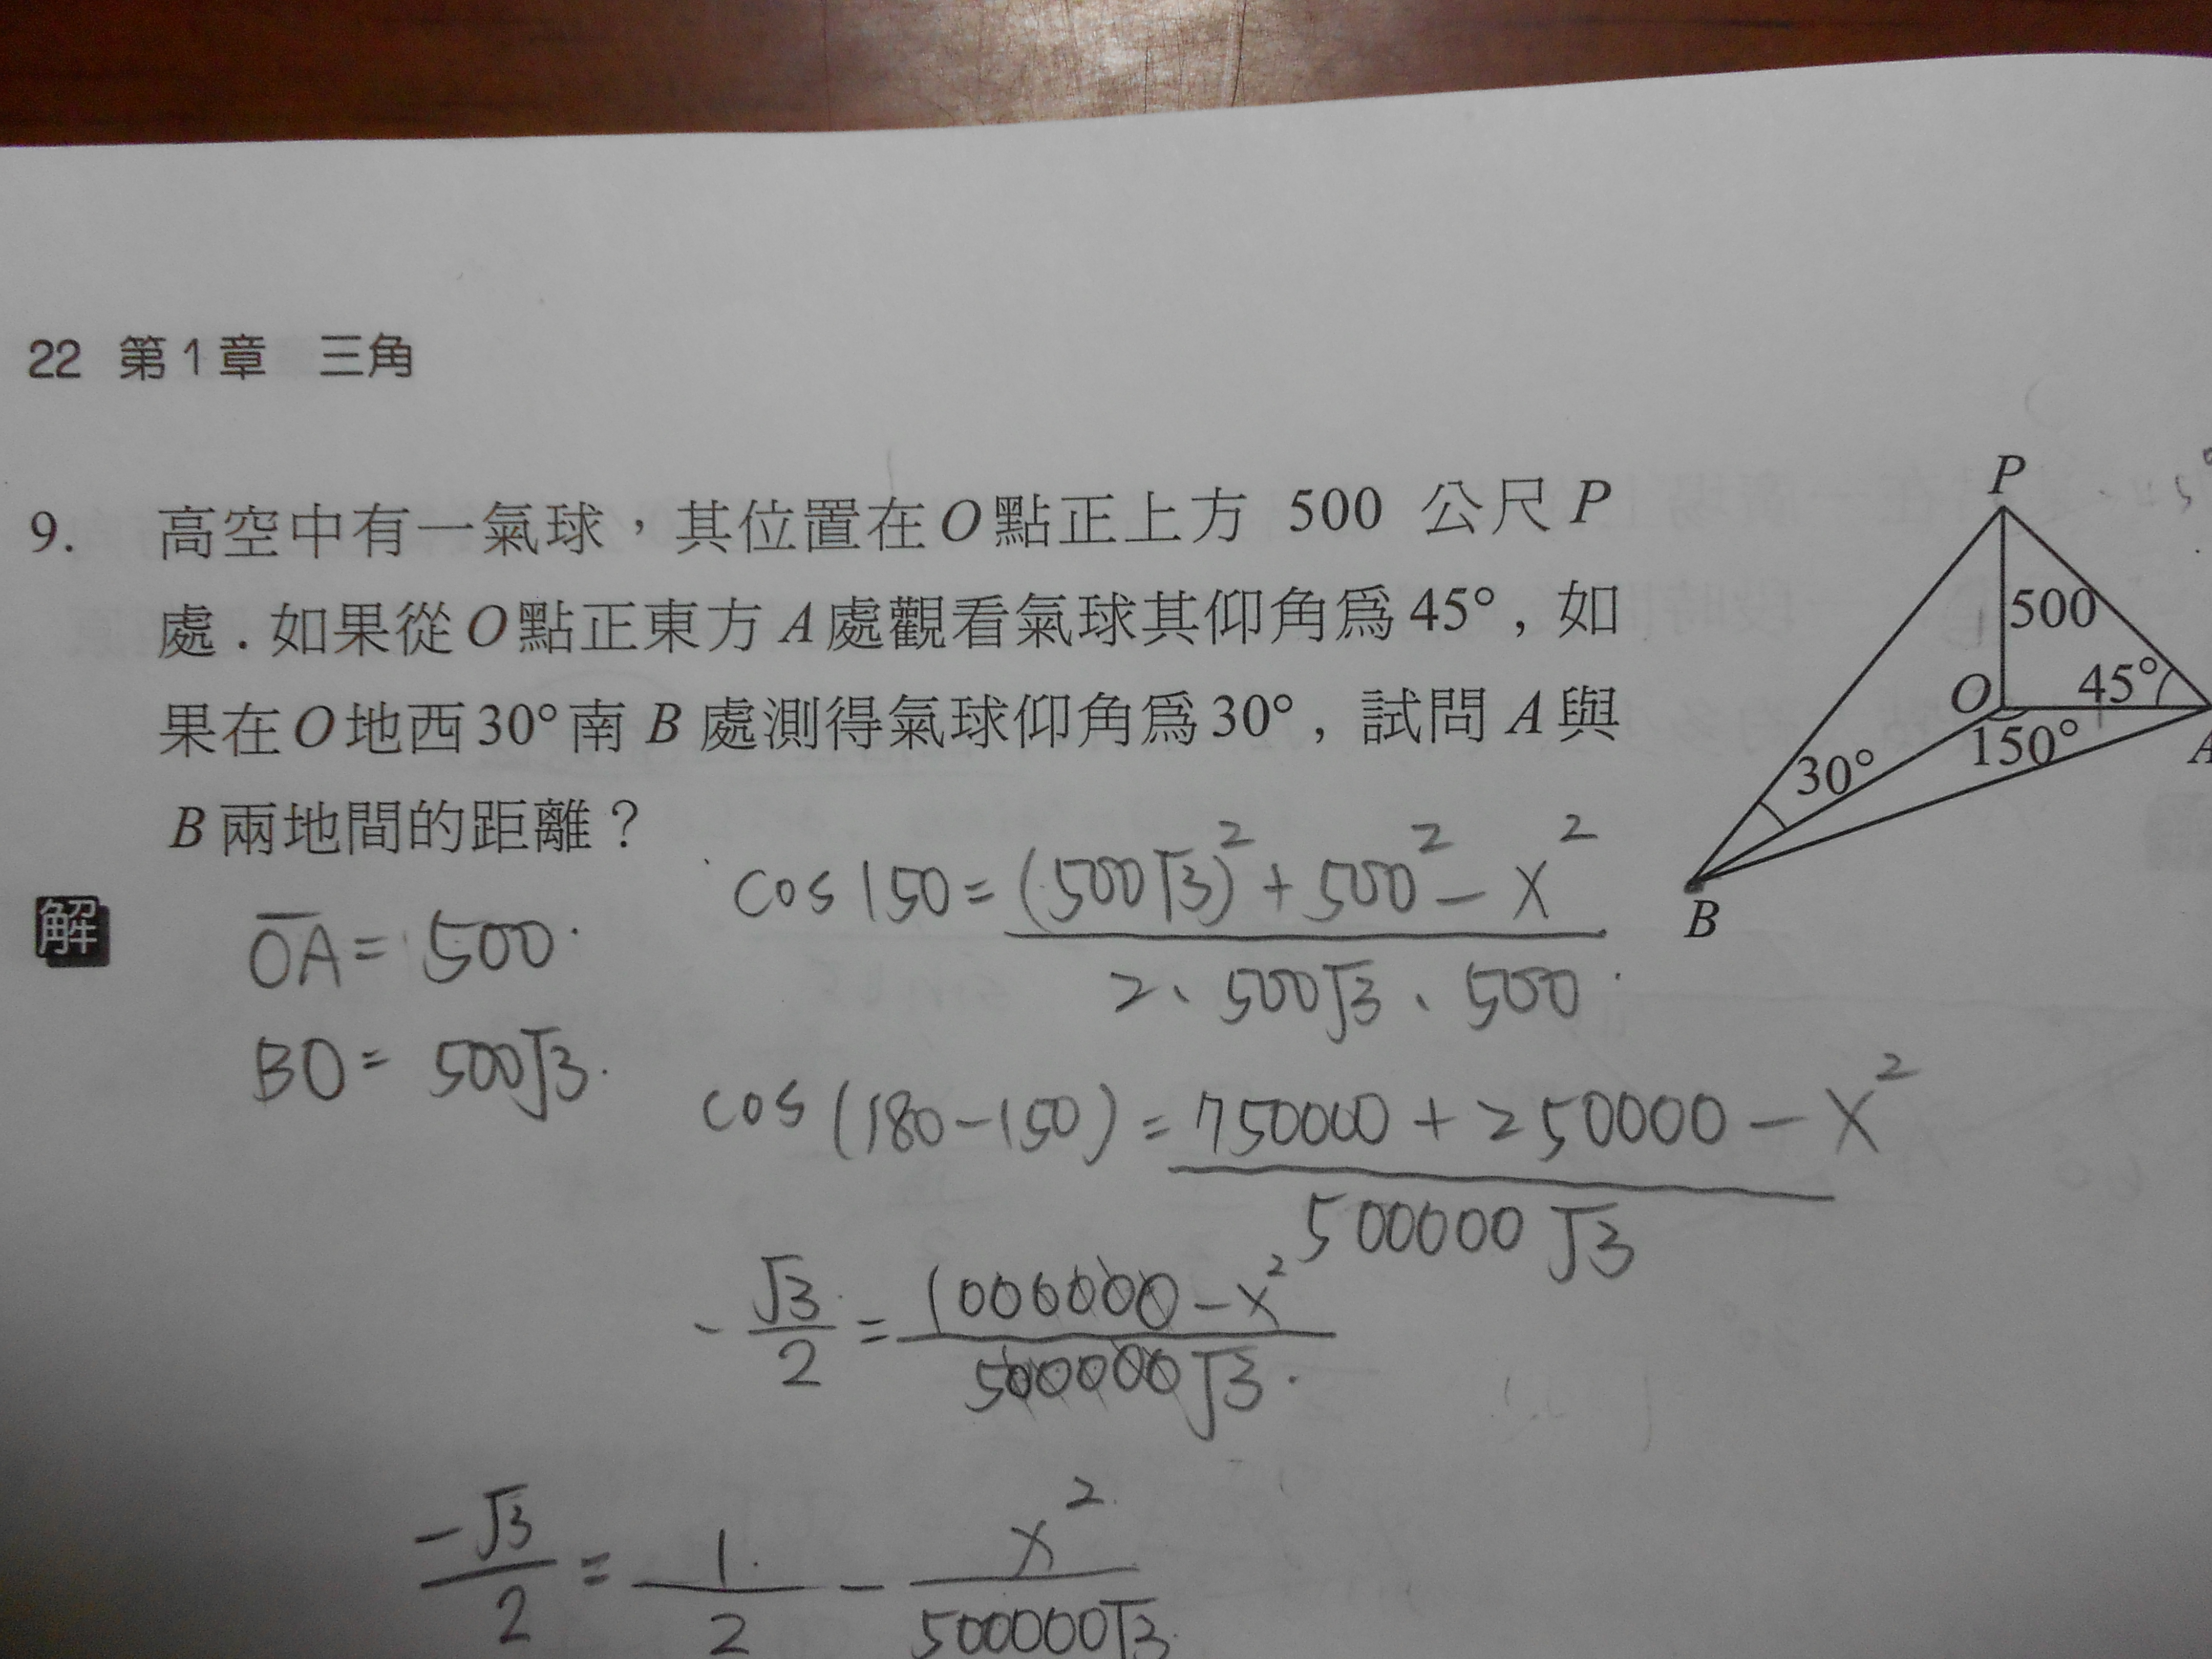 22 第1章 三角
9. 高空中有一氣球，其位置在O點正上方 500 公尺P
處．如果從O點正東方A處觀看氣球其仰角爲45°, 如
果在O地西30°南B處測得氣球仰角爲30°, 試問A與
B兩地間的距離？
P
500
O
45°
A
150°
30°
B
解
OA = 500
BO = 500√3
cos150 = (500√3)² + 500² - x²
2、500√3、500
cos(180-150) = 750000 + 250000 - x²
500000√3
-√3/2 = 1000000 - x²
500000√3
-√3/2 = 1/2 - x²/500000√3